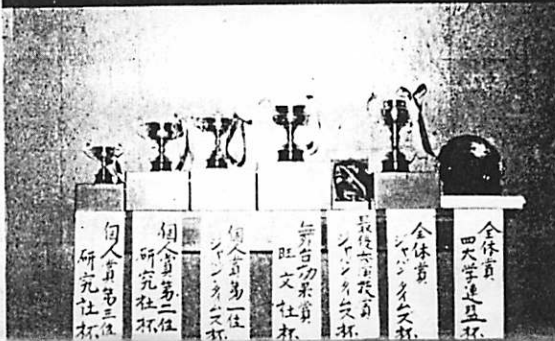 全体賞
四大学連盟杯
全体賞
ジャパンタイムズ杯
ジャパンタイムズ杯
舞台効果賞
旺文社杯
個人賞第一位
ジャパンタイムズ杯
個人賞第二位
研究社杯
個人賞第三位
研究社杯